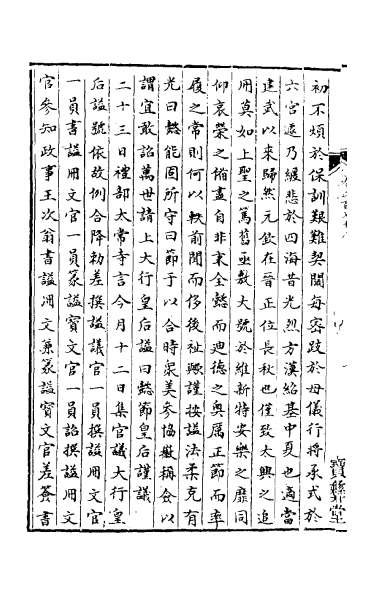 初不煩於保訓艱難契闊每容跂於母儀行將承式於
六宮遽乃纏悲於四海昔光烈方漢紹基中夏也適當
建武以來歸然元欽在晉正位長秋也僅致太興之追
用莫如上聖之篤舊亟敷大號於維新特安樂之靡同
仰哀榮之備盡自非秉全懿而迪德之奥厲正節而率
履之常則何以軼前聞而侈後祉歟謹按法柔克有
光曰懿能固所守曰節于以合時衆美參協徽稱僉以
謂宜敢詔萬世請上大行皇后諡曰懿節皇后謹議
二十三日禮部太常寺言今月十二日集官議大行皇
后諡號依故例合降勅差撰諡議官一員撰諡冊文官
一員書諡冊文官一員篆諡寳文官一員詔撰諡冊文
官參知政事王次翁書諡冊文兼篆諡寳文官差簽書
寶彝堂